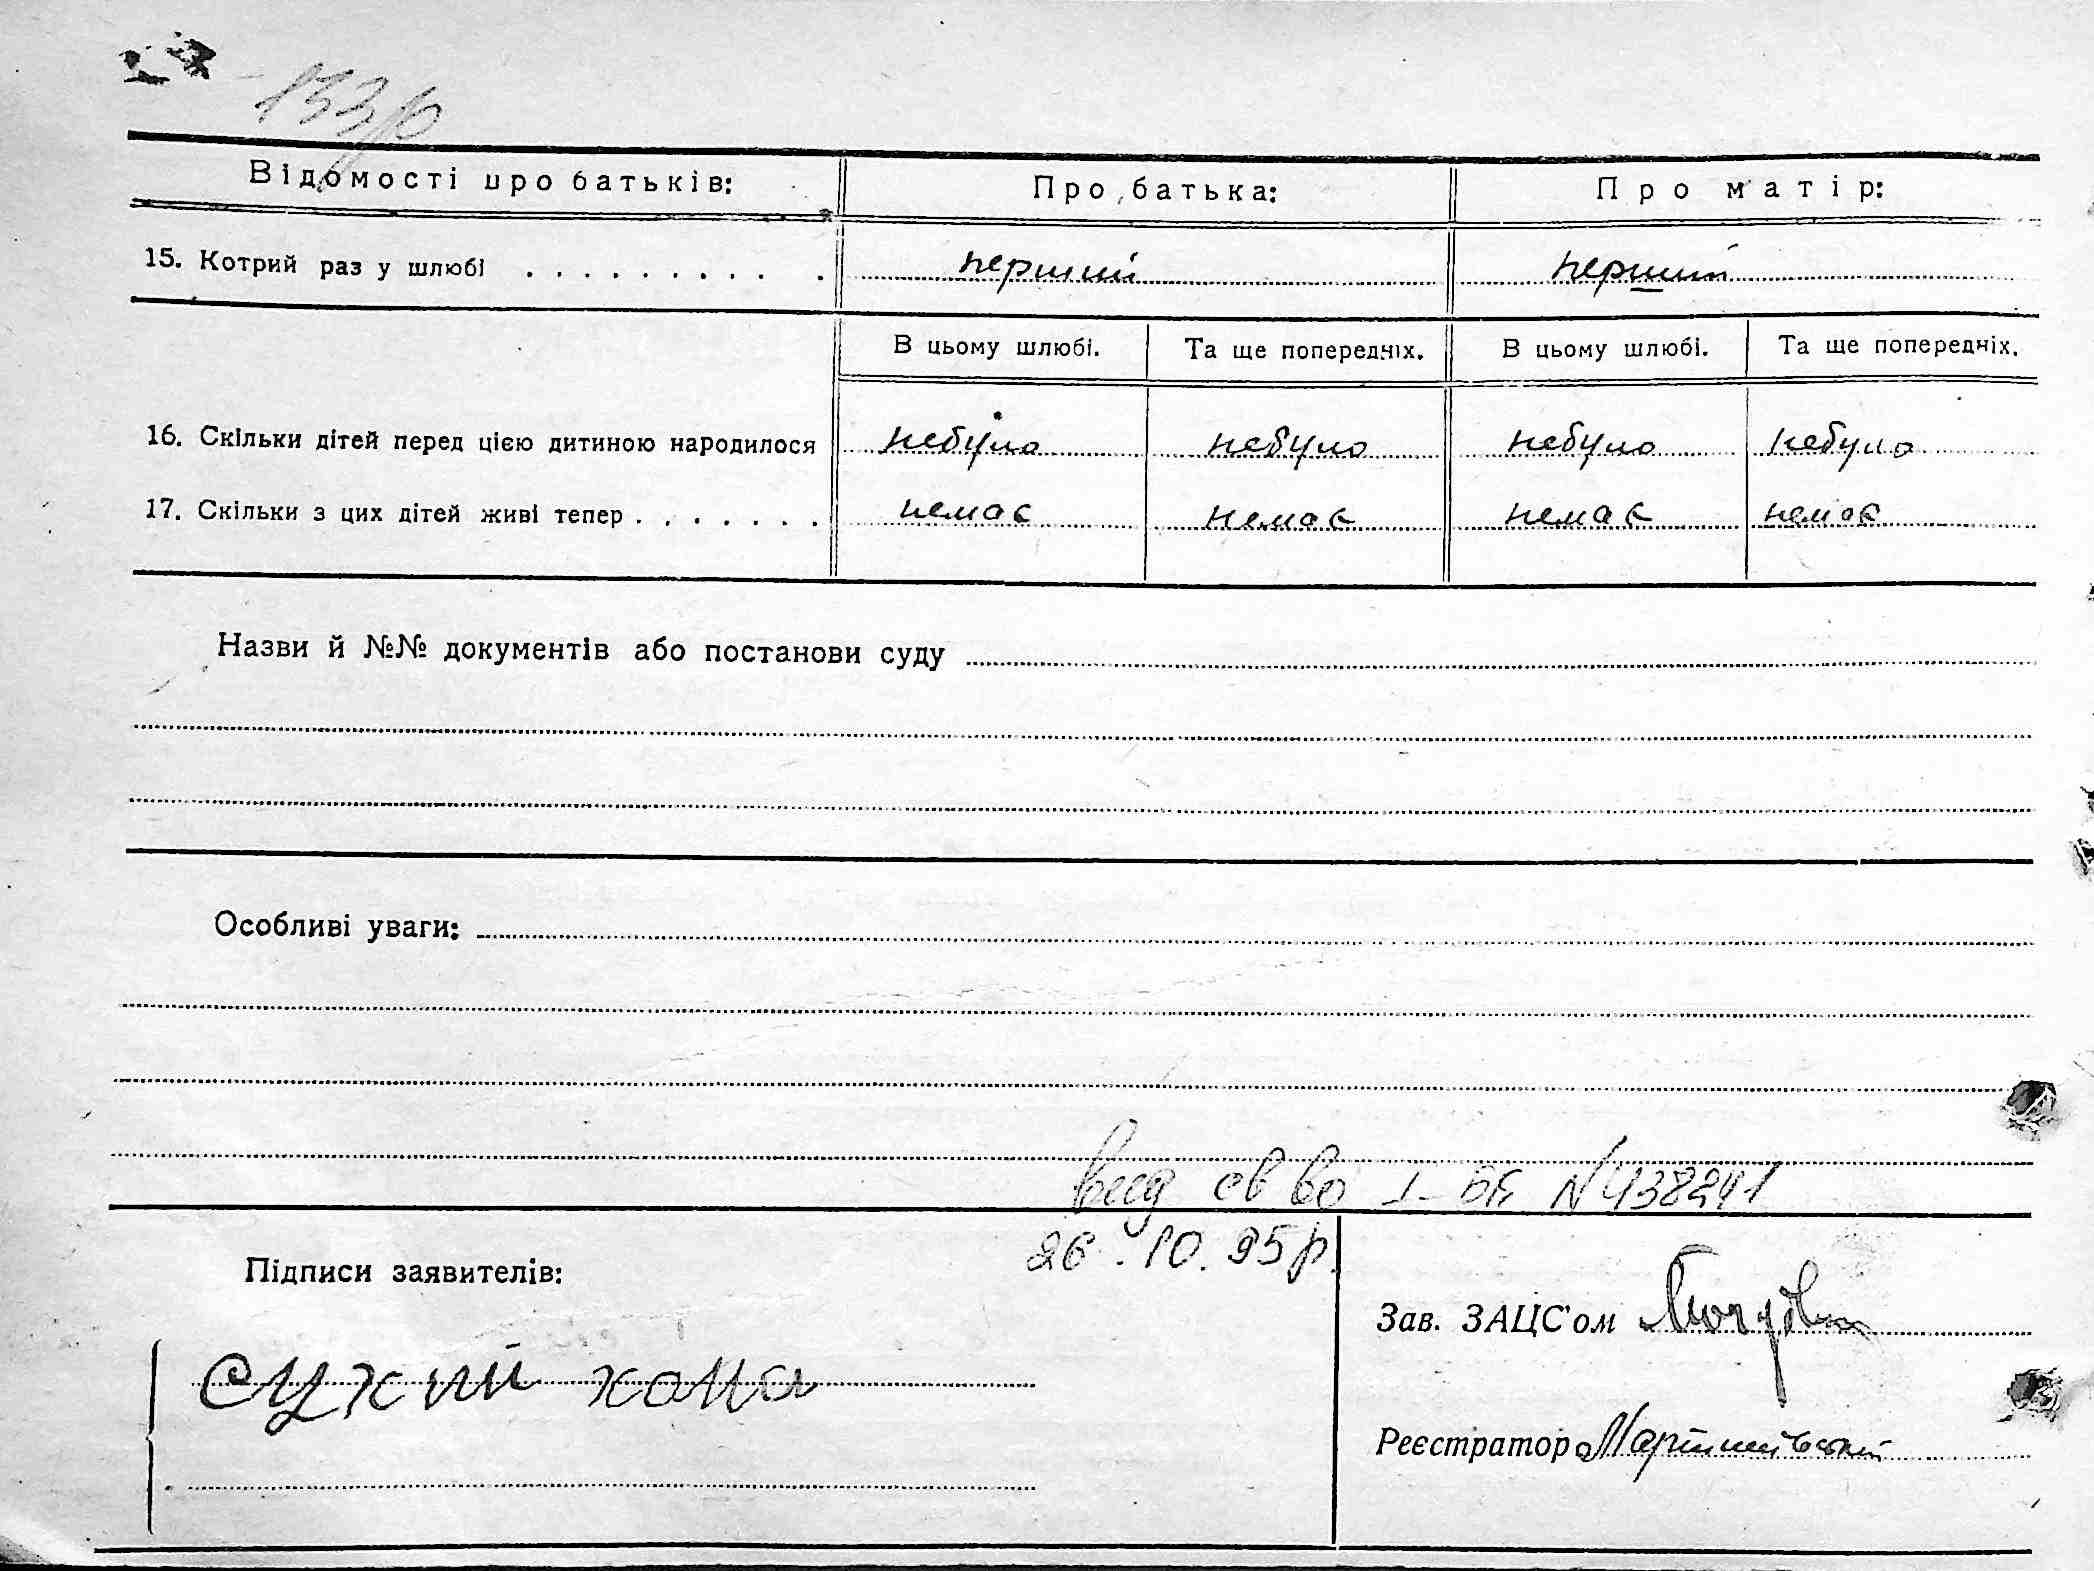 Відомості про батьків: Про батька: Про матір:
15. Котрий раз у шлюбі . . . . . . . . . . . перший перший
В цьому шлюбі. Та ще попередніх. В цьому шлюбі. Та ще попередніх.
16. Скільки дітей перед цією дитиною народилося небуло небуло небуло небуло
17. Скільки з цих дітей живі тепер . . . . . . . немає немає немає немає
Назви й №№ документів або постанови суду
Особливі уваги:
вид св во I-БК N 438241
26.10.95р.
Підписи заявителів:
Зав. ЗАЦС'ом
сухий хома
Реєстратор